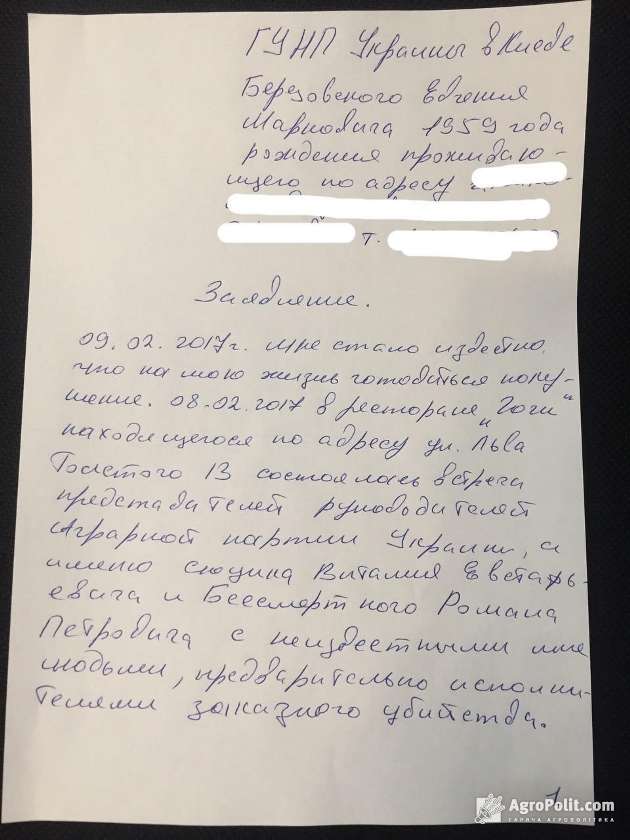 ГУНП Украины в Киеве
Березовского Евгения
Марковича 1959 года
рождения проживаю-
щего по адресу
т.
Заявление.
09.02.2017г. мне стало известно,
что на мою жизнь готовиться поку-
шение. 08.02.2017 в ресторане „Гоги“
находящегося по адресу ул. Льва
Толстого 13 состоялась встреча
представителей руководителей
Аграрной партии Украины, а
именно Скоцика Виталия Евстафь-
евича и Бессмертного Романа
Петровича с неизвестными мне
людьми, предварительно исполни-
телями заказного убийства.
1
AgroPolit.com
ГАРЯЧА АГРОПОЛІТИКА